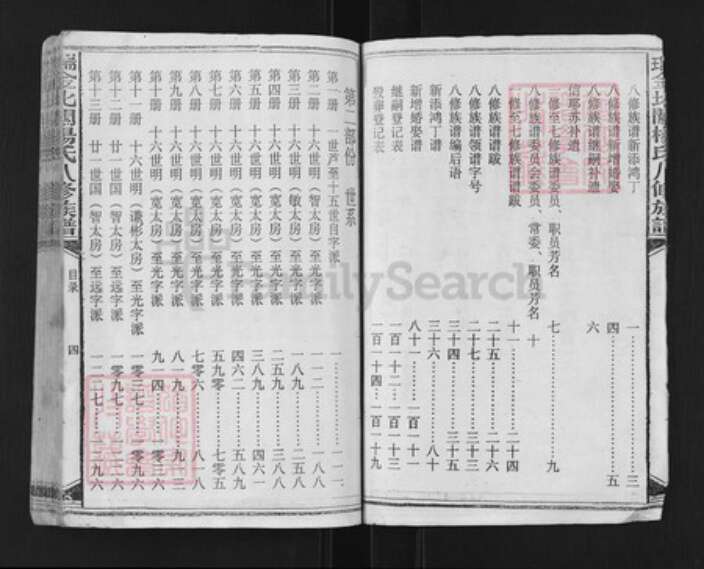 瑞金北關楊氏八修族譜
八修族谱新添鸿丁 一……三
八修族谱新增婚娶 四……五
八修族谱继嗣补遗 六
信耶苏补遗
一修至七修族谱委员、职员芳名 七……九
八修族谱委员会委员、常委、职员芳名 十
一修至七修族谱谱跋 十一……二十四
八修族谱谱跋 二十五……二十六
八修族谱领谱字号 二十七……三十三
八修族谱编后语 三十四……三十五
新添鸿丁谱 三十六……八十
新增婚娶谱 八十一……一百一十一
继嗣登记表 一百一十二……一百一十三
殁葬登记表 一百一十四……一百一十九
第二部份 世系
第一册 一世芦至十五世自字派 一……一一一
第二册 十六世明（智太房）至光字派 一一二……一八八
第三册 十六世明（敏太房）至光字派 一八九……三八八
第四册 十六世明（宽太房）至光字派 二五九……三八八
第五册 十六世明（宽太房）至光字派 三八九……四六一
第六册 十六世明（宽太房）至光字派 四六二……五八九
第七册 十六世明（宽太房）至光字派 五九零……七零五
第八册 十六世明（宽太房）至光字派 七零六……八一八
第九册 十六世明（宽太房）至光字派 八一九……九一三
第十册 十六世明（宽太房）至光字派 九一四……一零三六
第十一册 十六世明（谦彬太房）至光字派 一零三七……一零九六
第十二册 廿一世国（智太房）至远字派 一零九七……
第十三册 廿一世国（智太房）至远字派 一二二七……
瑞金北關楊氏八修族譜
目录
四
FamilySearch